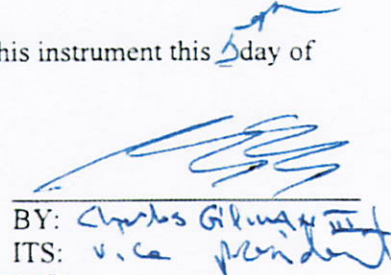 his instrument this 5th day of
BY: Charles Gilman III
ITS: Vice President